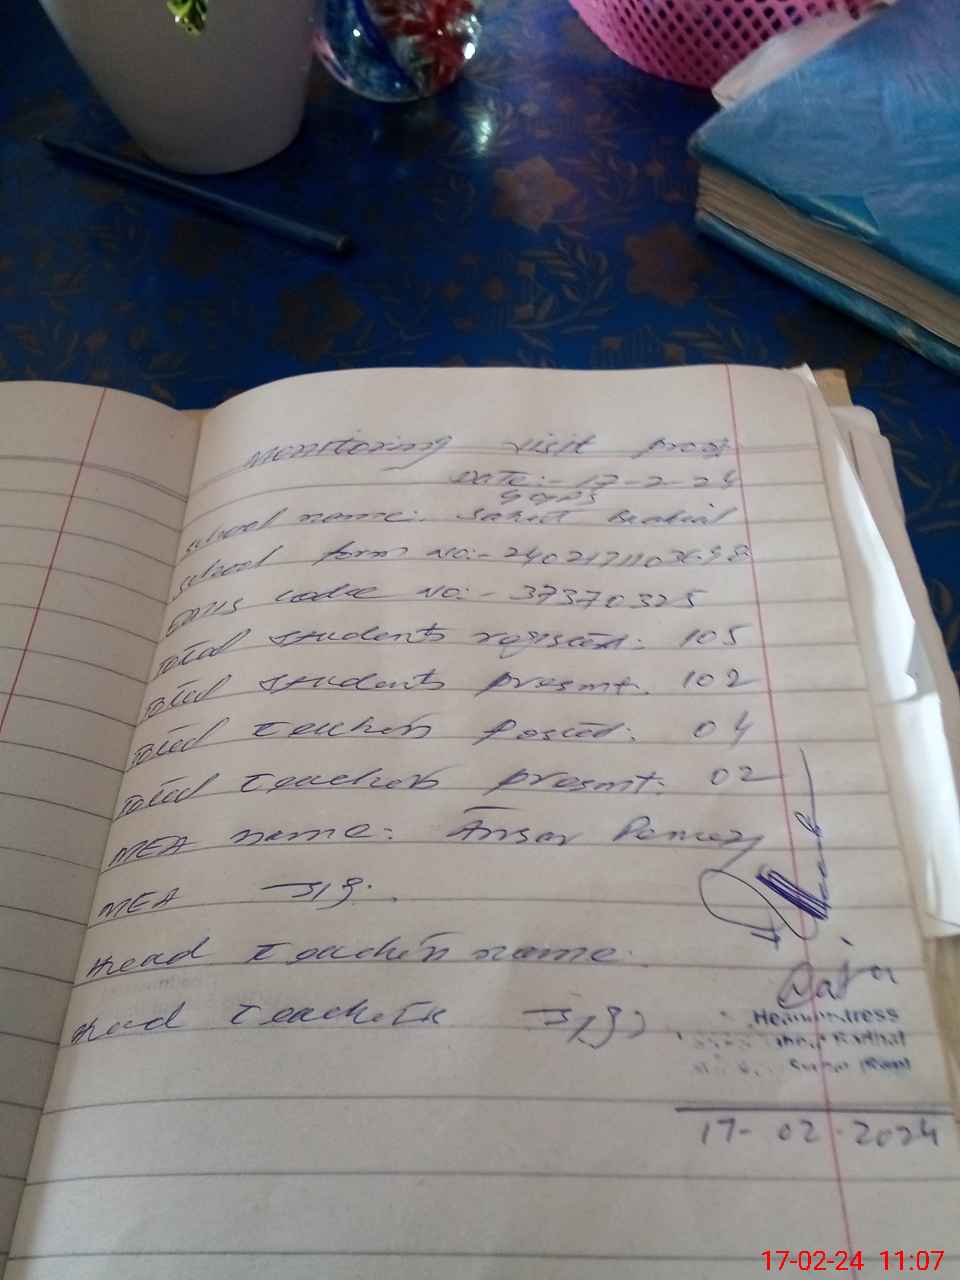 Monitoring visit proof
DATE:- 17-2-24
GGPS
school name: Sahib
school form NO:- 2402171103698
EMIS code NO:- 37370325
Total students registed: 105
Total students present. 102
Total Teachers Posted: 04
Total Teachers present: 02
MEA name: Ansar
MEA sig:
Head Teacher name:
Head Teacher sig:
Headmistress
17-02-2024
17-02-24 11:07